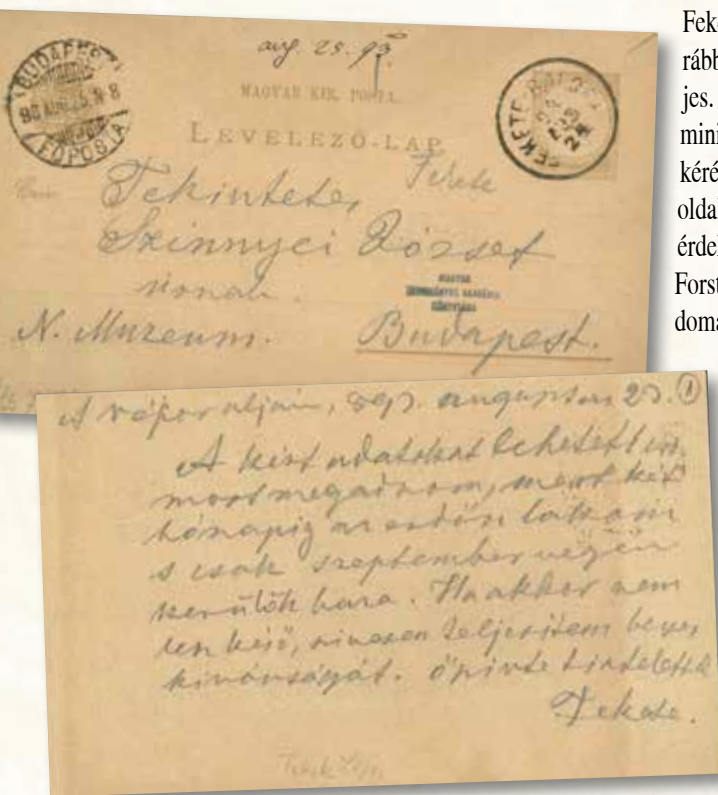 aug. 25. 93
BUDAPEST
FŐPOSTA
MAGYAR KIR. POSTA.
LEVELEZŐ-LAP
FEKETE
24
Fekete
Tekintetes
Szinnyei József
úrnak.
N. Muzeum.
Budapest.
MAGYAR
TUDOMÁNYOS AKADÉMIA
KÖNYVTÁRA
augusztus 23. 1
A kért adatokat lehetetlen
most megadnom, mert két
hónapig az erdőn lakom
s csak szeptember végén
kerülök haza. Ha akkor nem
lesz késő, szivesen teljesitem becses
kivánságát. őszinte tisztelettel
Fekete.
Fek
rább
jes.
mini
kéré
oldal
érdek
Forst
doma